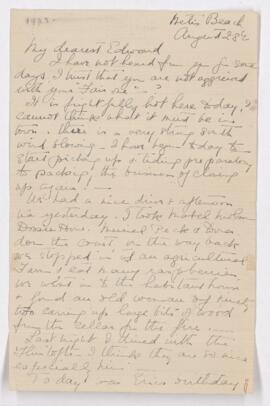 1923
Metis Beach
August 28th
My dearest Edward
I have not heard from you for some
days I trust that you are not aggrieved
with your "Fair one" - ?
It is frightfully hot here today, I
cannot think what it must be in
town. There is a very strong South
wind blowing - I have begun today to
start picking up & tidying preparatory
to packing, the business of closing
up again! -
We had a nice drive & afternoon
tea yesterday. I took Mabel
Muriel Peck & Dora
down the coast, on the way back
we stopped in at an agricultural
Farm, & eat many raspberries
we went in to the habitant house
& found an old woman of ninety
two carrying up large bits of wood
from the cellar for the fire ......
Last night I dined with the
I think they are so nice
especially him. -
To day was Eric's birthday